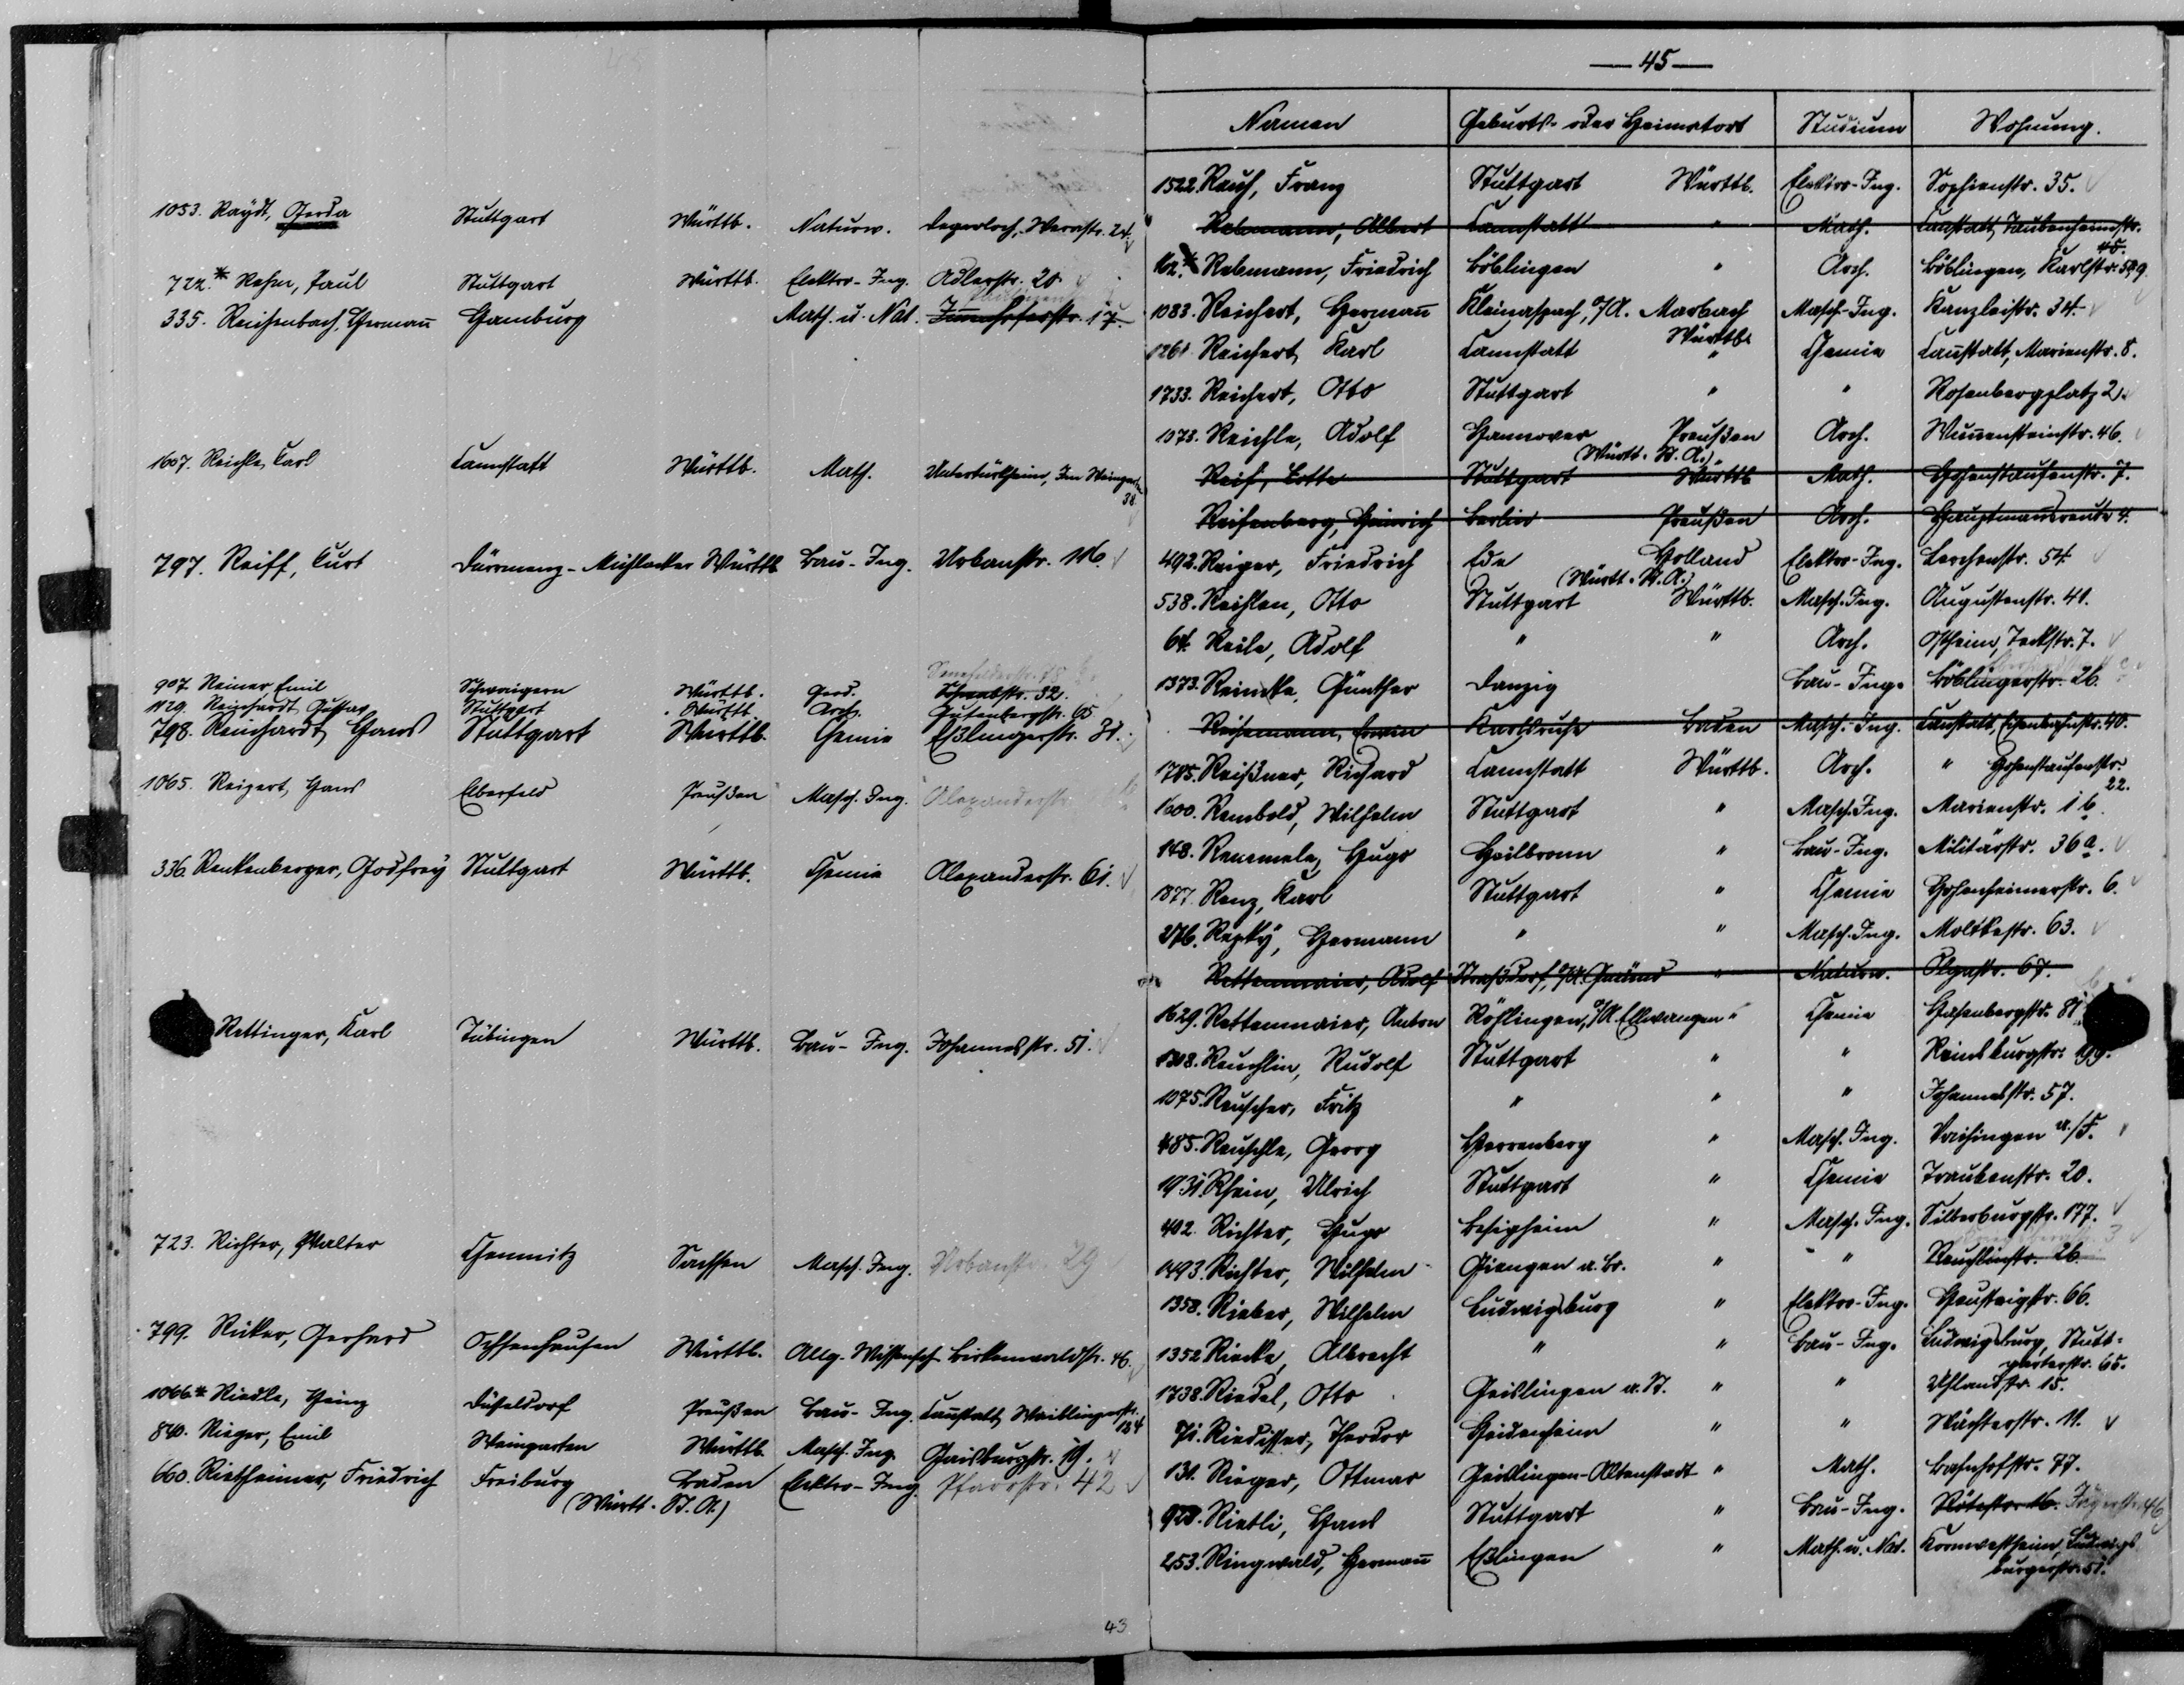 1053. Raydt, Gerda Stuttgart Württb. Naturw. Degerloch, Werastr. 24.
722.* Rehm, Paul Stuttgart Württb. Elektro-Ing. Adlerstr. 20.
335. Reichenbach, Hermañ Hamburg Math. u. Nat. 17.
1607. Reichle, Carl Cannstatt Württb. Math. Untertürkheim, Im Weingarten
38.
797. Reiff, Curt Dürrmenz-Mühlacker Württb. Bau-Ing. Urbanstr. 106.
907. Reiner, Emil Schwaigern Württb. Geod. Schwabstr. 32.
1129. Reinhardt, Gustav Stuttgart Württb. Arch. Gutenbergstr. 65
798. Reinhardt, Hans Stuttgart Württb. Chemie Eßlingerstr. 31.
1065. Reizert, Hans Elberfeld Preußen Masch. Ing. Alexanderstr.
336. Renkenberger, Godfrey Stuttgart Württb. Chemie Alexanderstr. 61.
Rettinger, Karl Tübingen Württb. Bau-Ing. Johannesstr. 51.
723. Richter, Walter Chemnitz Sachsen Masch. Ing. Urbanstr. 29
799. Ricker, Gerhard Ochsenhausen Württb. Allg. Wissensch. Birkenwaldstr. 46.
1066.* Riedle, Heinz Düsseldorf Preußen Bau-Ing. Cañstatt, Waiblingerstr.
124
840. Rieger, Emil Weingarten Württb. Masch. Ing. Gaisburgstr. 19.
660. Rietheimer, Friedrich Freiburg Baden Elektro-Ing. Pfarrstr. 42
(Württ. St. A.)
43
— 45 —
Namen Geburts- oder Heimatort Studium Wohnung.
1522. Rauch, Franz Stuttgart Württb. Elektro-Ing. Sophienstr. 35.
Rebmann, Albert Cannstatt " Math. Cañstatt, Taubenheimstr.
45.
162.* Rebmann, Friedrich Böblingen " Arch. Böblingen, Karlstr. 529.
1083. Reichert, Hermañ Kleinaspach, O/A. Marbach Masch-Ing. Kanzleistr. 34.
Württb.
1261. Reichert, Karl Cannstatt " Chemie Cañstatt, Marienstr. 8.
1733. Reichert, Otto Stuttgart " " Rosenbergplatz 2.
1073. Reichle, Adolf Hannover Preußen Arch. Wuñensteinstr. 46.
(Württ. St. A.)
Reif, Lotte Stuttgart Württb Math. Hohenstaufenstr. 7.
Reifenberg, Heinrich Berlin Preußen Arch. Hauptmañsreute 4.
492. Reiger, Friedrich Ede Holland Elektro-Ing. Lerchenstr. 54.
(Württ. St. A.)
538. Reihlen, Otto Stuttgart Württb. Masch. Ing. Augustenstr. 41.
64. Reile, Adolf " " Arch. Ostheim, Teckstr. 7.
1373. Reincke, Günther Danzig Bau-Ing. Böblingerstr. 26.
Karlsruhe Baden Masch. Ing. Cañstatt, Eisenbahnstr. 40.
1705. Reißner, Richard Cannstatt Württb. Arch. " Hohenstaufenstr.
22.
1600. Rembold, Wilhelm Stuttgart " Masch. Ing. Marienstr. 1 b.
148. Remmele, Hugo Heilbronn " Bau-Ing. Militärstr. 36 a.
1877. Renz, Karl Stuttgart " Chemie Hohenheimerstr. 6.
276. Repky, Hermann " " Masch. Ing. Moltkestr. 63.
Rettenmaier, Adolf Straßdorf, O/A. Gmünd " Naturw. Olgastr. 67.
1629. Rettenmaier, Anton Röhlingen, O/A Ellwangen " Chemie Hasenbergstr. 81
1308. Reuchlin, Rudolf Stuttgart " " Reinsburgstr. 199.
1075. Reuscher, Fritz " " " Johannesstr. 57.
485. Reuschle, Georg Herrenberg " Masch. Ing. Vaihingen a./F.
1931. Rhein, Ulrich Stuttgart " Chemie Traubenstr. 20.
402. Richter, Hugo Besigheim " Masch. Ing. Silberburgstr. 177.
1493. Richter, Wilhelm Giengen a. Br. " " Reuchlinstr. 26.
1358. Rieber, Wilhelm Ludwigsburg " Elektro-Ing. Heusteigstr. 66.
1352 Riecke, Albrecht " " Bau-Ing. Ludwigsburg, Stutt-
garterstr. 65.
1738. Riedel, Otto Geislingen a. St. " " Uhlandstr. 15.
71. Riedisser, Theodor Heidenheim " " Wächterstr. 11.
131. Rieger, Ottmar Geislingen-Altenstadt " Math. Bahnhofstr. 77.
928. Rietli, Hans Stuttgart " Bau-Ing. Rötestr. 16. Jägerstr. 46
253. Ringwald, Hermañ Eßlingen " Math. u. Nat. Kornwestheim, Ludwigs
burgerstr. 51.